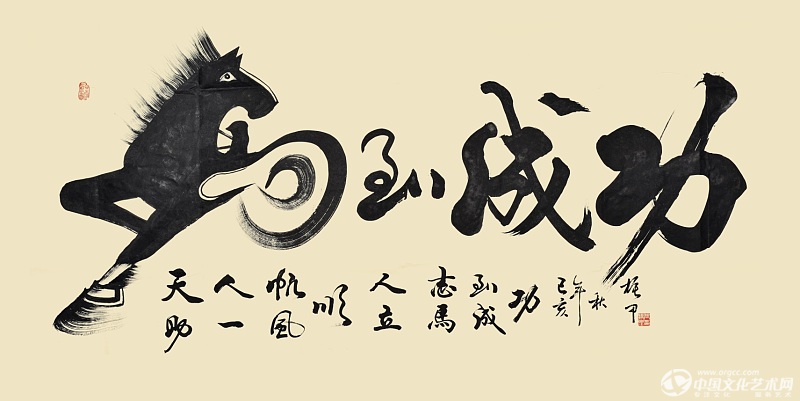 马到成功
天助
人一
帆風
順
人立
志馬
到成
功
己亥
年
秋
www.orgcc.com
中国文化艺术网